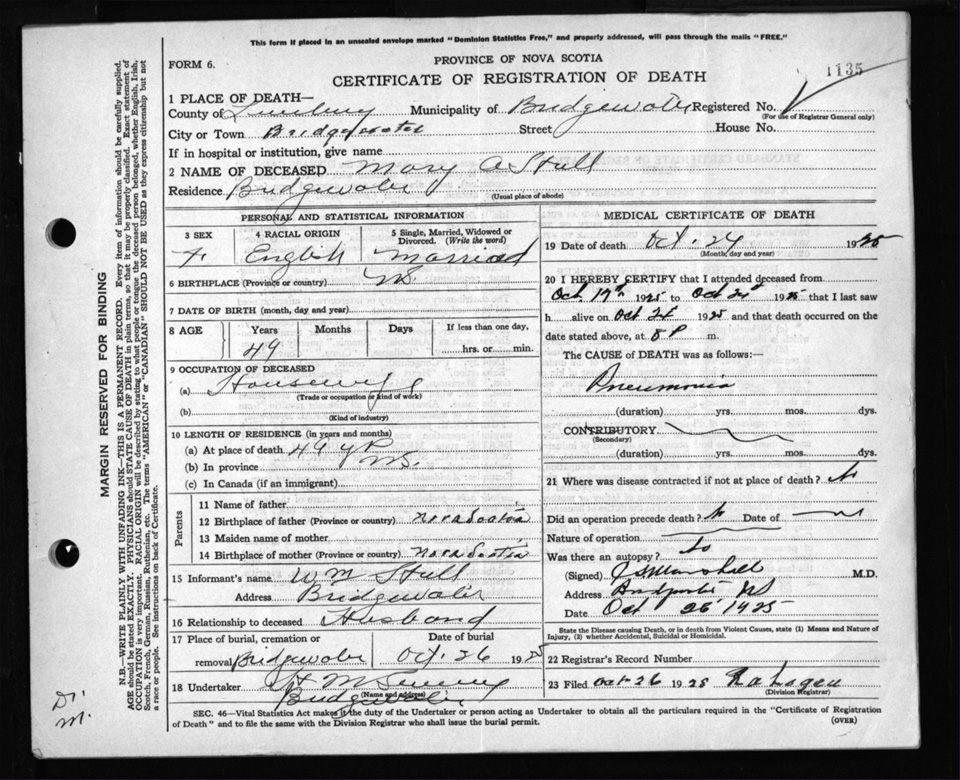 This form if placed in an unsealed envelope marked "Dominion Statistics Free," and properly addressed, will pass through the mails "FREE."
FORM 6.
PROVINCE OF NOVA SCOTIA
CERTIFICATE OF REGISTRATION OF DEATH
1135
1 PLACE OF DEATH—
County of Lunenburg Municipality of Bridgewater Registered No.
(For use of Registrar General only)
City or Town Bridgewater Street House No.
If in hospital or institution, give name
2 NAME OF DECEASED Mary A Stull
Residence Bridgewater
(Usual place of abode)
PERSONAL AND STATISTICAL INFORMATION
3 SEX 4 RACIAL ORIGIN 5 Single, Married, Widowed or Divorced. (Write the word)
F. English Married
6 BIRTHPLACE (Province or country) NS.
7 DATE OF BIRTH (month, day and year)
8 AGE Years Months Days If less than one day,
49 hrs. or min.
9 OCCUPATION OF DECEASED
(a) Housewife
(Trade or occupation or kind of work)
(b)
(Kind of industry)
10 LENGTH OF RESIDENCE (in years and months)
(a) At place of death 49 yr
(b) In province NS.
(c) In Canada (if an immigrant)
Parents
11 Name of father
12 Birthplace of father (Province or country) Nova Scotia
13 Maiden name of mother
14 Birthplace of mother (Province or country) Nova Scotia
15 Informant's name Wm Stull
Address Bridgewater
16 Relationship to deceased Husband
17 Place of burial, cremation or Date of burial
removal Bridgewater Oct. 26 1925
18 Undertaker
(Name and address)
Bridgewater
MEDICAL CERTIFICATE OF DEATH
19 Date of death Oct. 24 1925
(Month, day and year)
20 I HEREBY CERTIFY that I attended deceased from
Oct 17th 1925 to Oct 24th 1925 that I last saw
h alive on Oct 24 1925 and that death occurred on the
date stated above, at 8 P m.
The CAUSE of DEATH was as follows:
Pneumonia
(duration) yrs. mos. dys.
CONTRIBUTORY
(Secondary)
(duration) yrs. mos. dys.
21 Where was disease contracted if not at place of death?
Did an operation precede death? No Date of
Nature of operation
Was there an autopsy?
(Signed) M.D.
Address
Date Oct 26 1925
State the Disease causing Death, or in death from Violent Causes, state (1) Means and Nature of
Injury, (2) whether Accidental, Suicidal or Homicidal.
22 Registrar's Record Number
23 Filed Oct-26 1925
(Division Registrar)
SEC. 46—Vital Statistics Act makes it the duty of the Undertaker or person acting as Undertaker to obtain all the particulars required in the "Certificate of Registration
of Death" and to file the same with the Division Registrar who shall issue the burial permit. (OVER)
MARGIN RESERVED FOR BINDING
N.B.—WRITE PLAINLY WITH UNFADING INK—THIS IS A PERMANENT RECORD. Every item of information should be carefully supplied.
AGE should be stated EXACTLY. PHYSICIANS should STATE CAUSE OF DEATH in plain terms, so that it may be properly classified. Exact statement of
OCCUPATION is very important. RACIAL ORIGIN will be described by stating to what people or tongue the deceased person belonged, whether English, Irish,
Scotch, French, German, Russian, Ruthenian, etc. The terms "AMERICAN" or "CANADIAN" SHOULD NOT BE USED as they express citizenship but not
a race or people. See instructions on back of Certificate.